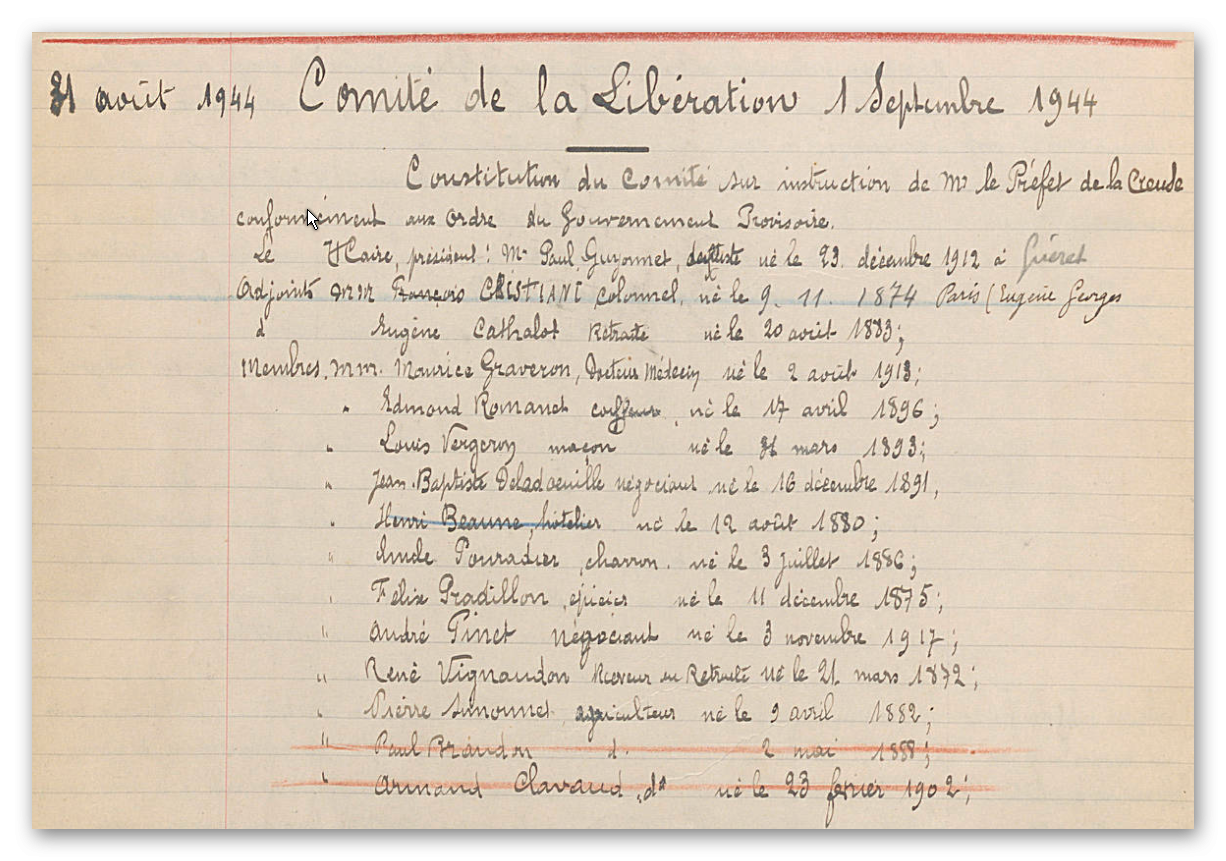 31 août 1944 Comité de la Libération 1 Septembre 1944
Constitution du Comité sur instruction de Mr le Préfet de la Creuse
conformément aux ordre du Gouvernement Provisoire.
Le Maire, président : Mr Paul Guyonnet, dentiste né le 23 décembre 1912 à Guéret
Adjoints MM François CRISTIANI Colonnel, né le 9. 11. 1874 Paris (Eugène Georges
d° Eugène Cathalot Retraité né le 20 août 1883;
Membres. M.M. Maurice Graveron, Docteur Médecin né le 2 août 1913;
" Edmond Romanet coiffeur né le 17 avril 1896;
" Louis Vergeron maçon né le 31 mars 1893;
" Jean-Baptiste négociant né le 16 décembre 1891,
" Henri Beaune, hôtelier né le 12 août 1880;
" Emile Pouradier, charron. né le 3 juillet 1886;
" Félix Pradillon, épicier né le 11 décembre 1875;
" André Pinet négociant né le 3 novembre 1917;
" René Vignaudon Receveur en Retraite né le 21 mars 1872;
" Pierre agriculteur né le 9 avril 1882;
" Paul Brandon d° 2 mai 1888;
" Armand Clavaud, d° né le 23 février 1902;